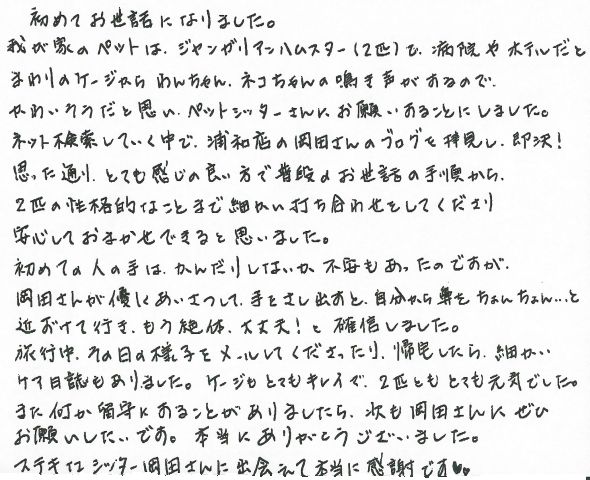 初めてお世話になりました。
我が家のペットは、ジャンガリアンハムスター(2匹)で、病院やホテルだと
まわりのケージから わんちゃん、ネコちゃんの鳴き声がするので、
かわいそうだと思い、ペットシッターさんに お願いすることにしました。
ネット検索していく中で、浦和店の岡田さんのブログを拝見し、即決!
思った通り、とても感じの良い方で普段のお世話の手順から、
2匹の性格的なことまで細かい打ち合わせをしてくださり
安心しておまかせできると思いました。
初めての人の手は、かんだりしないか、不安もあったのですが、
岡田さんが優しくあいさつして、手をさし出すと、自分から鼻をちょんちょん…と
近づけて行き、もう絶体、大丈夫!と 確信しました。
旅行中、その日の様子をメールしてくださったり、帰宅したら、細かい
ケア日誌もありました。ケージもとてもキレイで、2匹とも とても元気でした。
また何か留守にすることがありましたら、次も岡田さんに ぜひ
お願いしたいです。本当に ありがとうございました。
ステキなシッター岡田さんに出会えて本当に感謝です♥♥